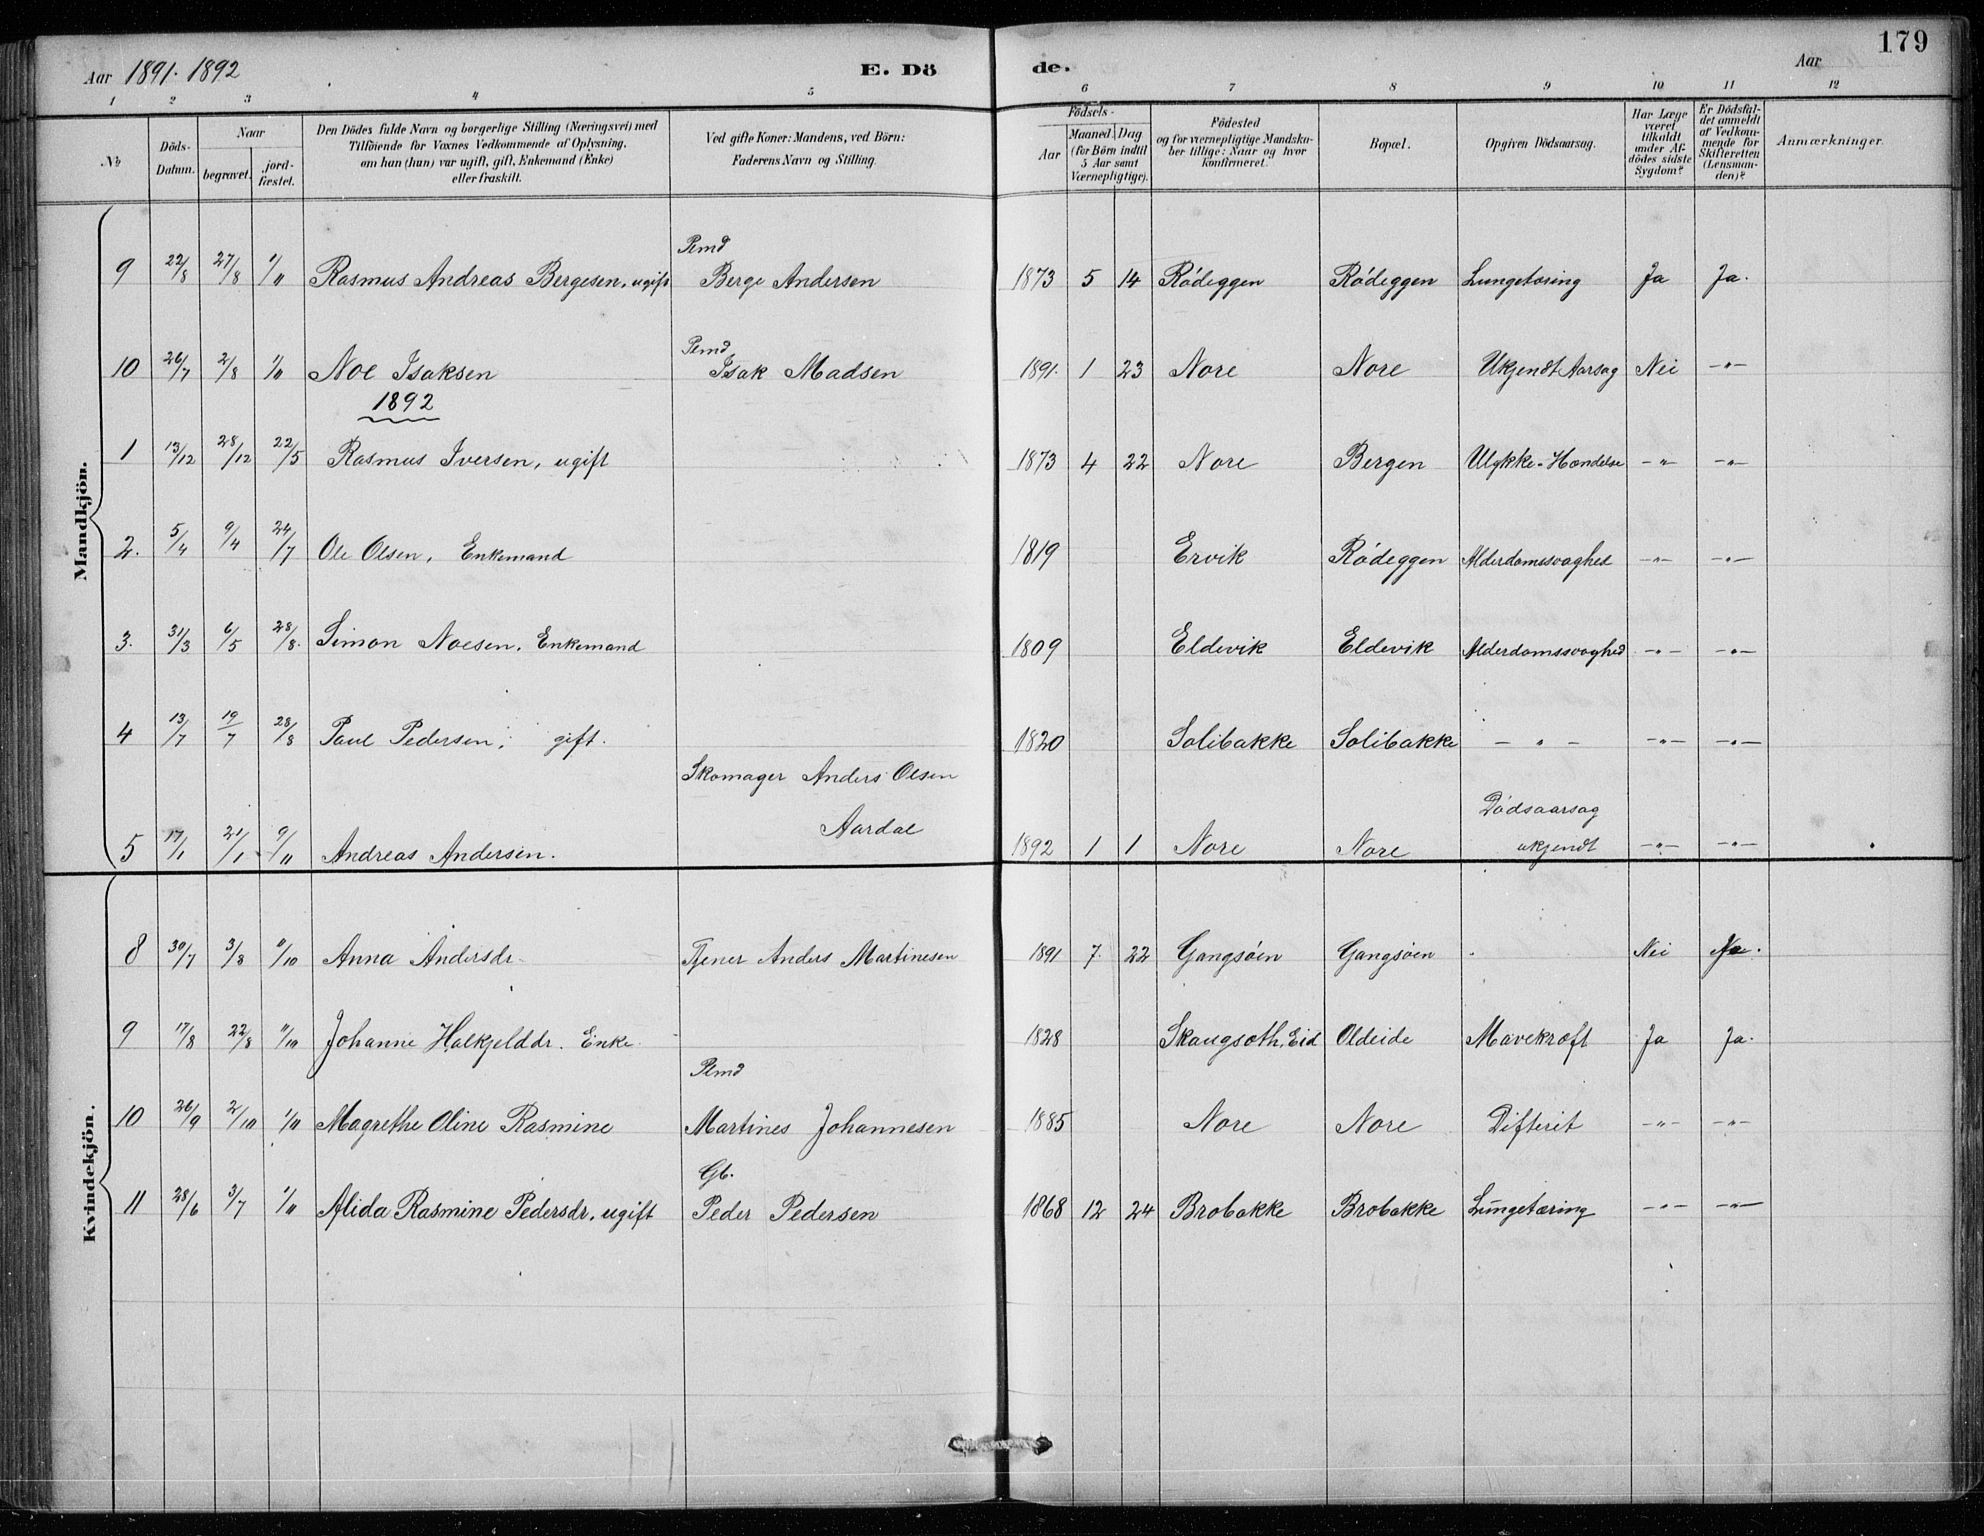 179
Aar 1891. 1892 E. Dö de. Aar
1 2 3 4 5 6 7 8 9 10 11 12
№ Döds-Datum. Naar begravet. jord-fæstet. Den Dödes fulde Navn og borgerlige Stilling (Næringsvei) med Tilföiende for Voxnes Vedkommende af Oplysning, om han (hun) var ugift, gift, Enkemand (Enke) eller fraskilt. Ved gifte Koner: Mandens, ved Börn: Faderens Navn og Stilling. Födsels- Aar Maaned Dag (for Börn indtil 5 Aar samt Værnepligtige). Födested og for værnepligtige Mandskaber tillige: Naar og hvor konfirmeret. Bopæl. Opgiven Dödsaarsag. Har Læge været tilkaldt under Afdödes sidste Sygdom? Er Dödsfaldet anmeldt af Vedkommende for Skifteretten (Lensmanden)? Anmærkninger.
Mandkjön.
Pmd
9 22/8 27/8 1/11 Rasmus Andreas Bergesen, ugift Berge Andersen 1873 5 14 Rödeggen Rödeggen Lungetæring Ja Ja.
Pmd
10 26/7 2/8 1/11 Noe Isaksen Isak Madsen 1891. 1 23 Nore Nore Ukjendt Aarsag Nei —"—
1892
1 13/12 28/12 22/5 Rasmus Iversen, ugift 1873 4 22 Nore Bergen Ulykke-Hændelse —"— —"—
2. 5/4 9/4 24/7 Ole Olsen, Enkemand 1819 Ervik Rödeggen Alderdomssvaghed —"— —"—
3. 31/3 6/5 28/8. Simon Noesen, Enkemand 1809 Eldevik Eldevik Alderdomssvaghed —"— —"—
4 13/7 19/7 28/8 Paul Pedersen, gift. 1820 Solibakke Solibakke — " — —"— —"—
Skomager Anders Olsen
Aardal Dödsaarsag
5 17/1 21/1 9/11 Andreas Andersen. 1892 1 1 Nore Nore ukjendt —"— —"—
Kvindekjön.
8 30/7 3/8 11/10 Anna Andersdr. Tjener Anders Martinesen 1891 7. 22 Gangsöen Gangsöen Nei
9 17/8 22/8 11/10 Johanne Halkjelddr. Enke 1828 Skaugsæth, Eid Oldeide Mavekræft Ja Ja.
Pmd
10 26/9 2/10 1/11 Magrethe Oline Rasmine Martines Johannesen 1885 Nore Nore Difterit —"— —"—
Gb.
11 28/6 3/7 1/11 Alida Rasmine Pedersdr, ugift Peder Pedersen 1868 12 24 Brobakke Brobakke Lungetæring —"— —"—